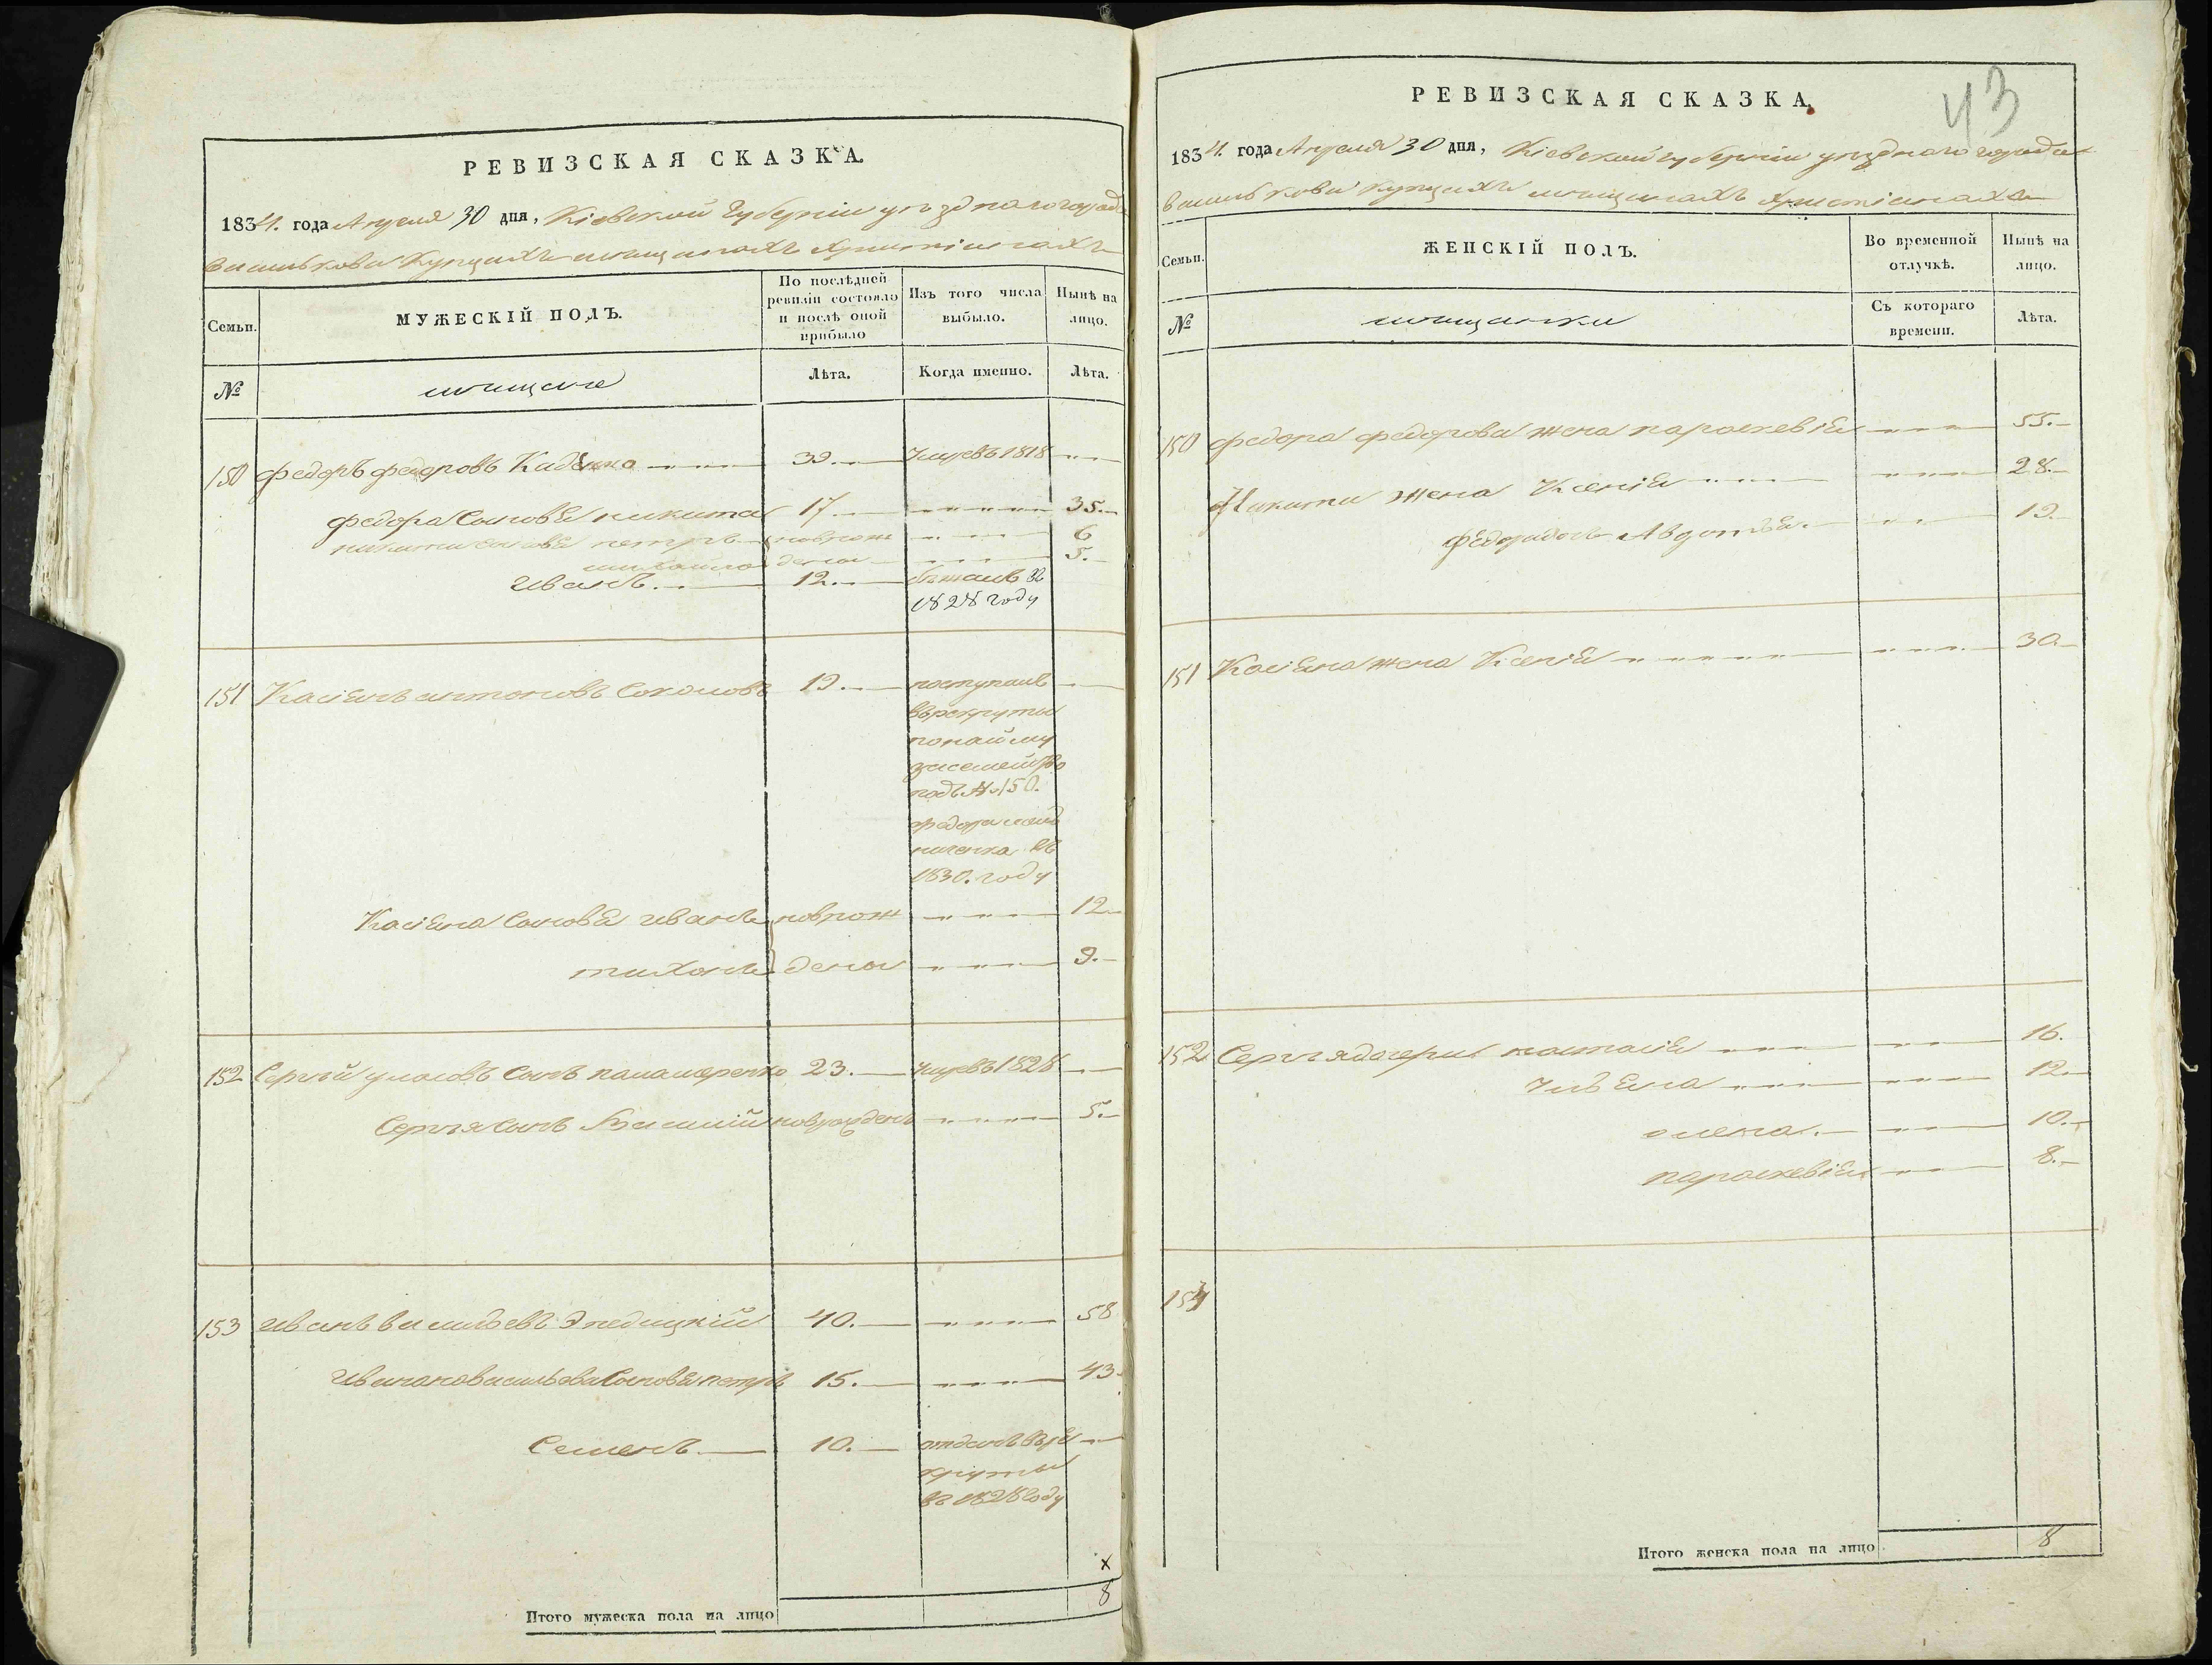 РЕВИЗСКАЯ СКАЗКА.
1834. года Апреля 30 дня, Кіевской Губерніи уезднаго города
Василькова Купцахъ мещанахъ Христіянахъ
Семьи.
МУЖЕСКІЙ ПОЛЪ.
По послѣдней ревизіи состояло и послѣ оной прибыло
Изъ того числа выбыло.
Нынѣ на лицо.
№
мещане
Лѣта.
Когда именно.
Лѣта.
150 Федоръ федоровъ 39. Умревъ 1818
федора Сыновя никита 17 35.
никиты сынове петръ новрож 6
михайло дены 5.
Иванъ. 12. бежалъ въ
1828 году
151 Касіянъ антоновъ Соколовъ 19. поступилъ
въ рекруты
по найму
за семейство
подъ № 150.
федора
въ
1830. году
Касіяна Сыновя иванъ новрож 12
тихонъ дены 9.
152 Сергѣй уласовъ Сынъ паламаренко 23. Умревъ 1828
Сергѣя Сынъ Василій новрожденъ 5.
153 иванъ васильевъ 40. 58
Иванана васильева Сыновя петръ 15. 43.
Семенъ 10. отданъ въ ре
круты
въ 1828 году
х
Итого мужеска пола на лицо 8
43
РЕВИЗСКАЯ СКАЗКА.
1834. года Апреля 30 дня, Кіевской губерніи уезднаго города
Василькова Купцахъ мещанахъ Христіянахъ
Семьи.
ЖЕНСКІЙ ПОЛЪ.
Во временной отлучкѣ.
Нынѣ на лицо.
№
мещанки
Съ котораго времени.
Лѣта.
150 федора федорова жена параскевія 55.
Никиты жена Ксенія 28.
федора дочь Авдотья 19.
151 Касіяна жена Ксенія 30.
152 Сергѣя дочери настасія 16.
Улянa 12
олена. 10.
параскевія 8.
153
Итого женска пола на лицо 8